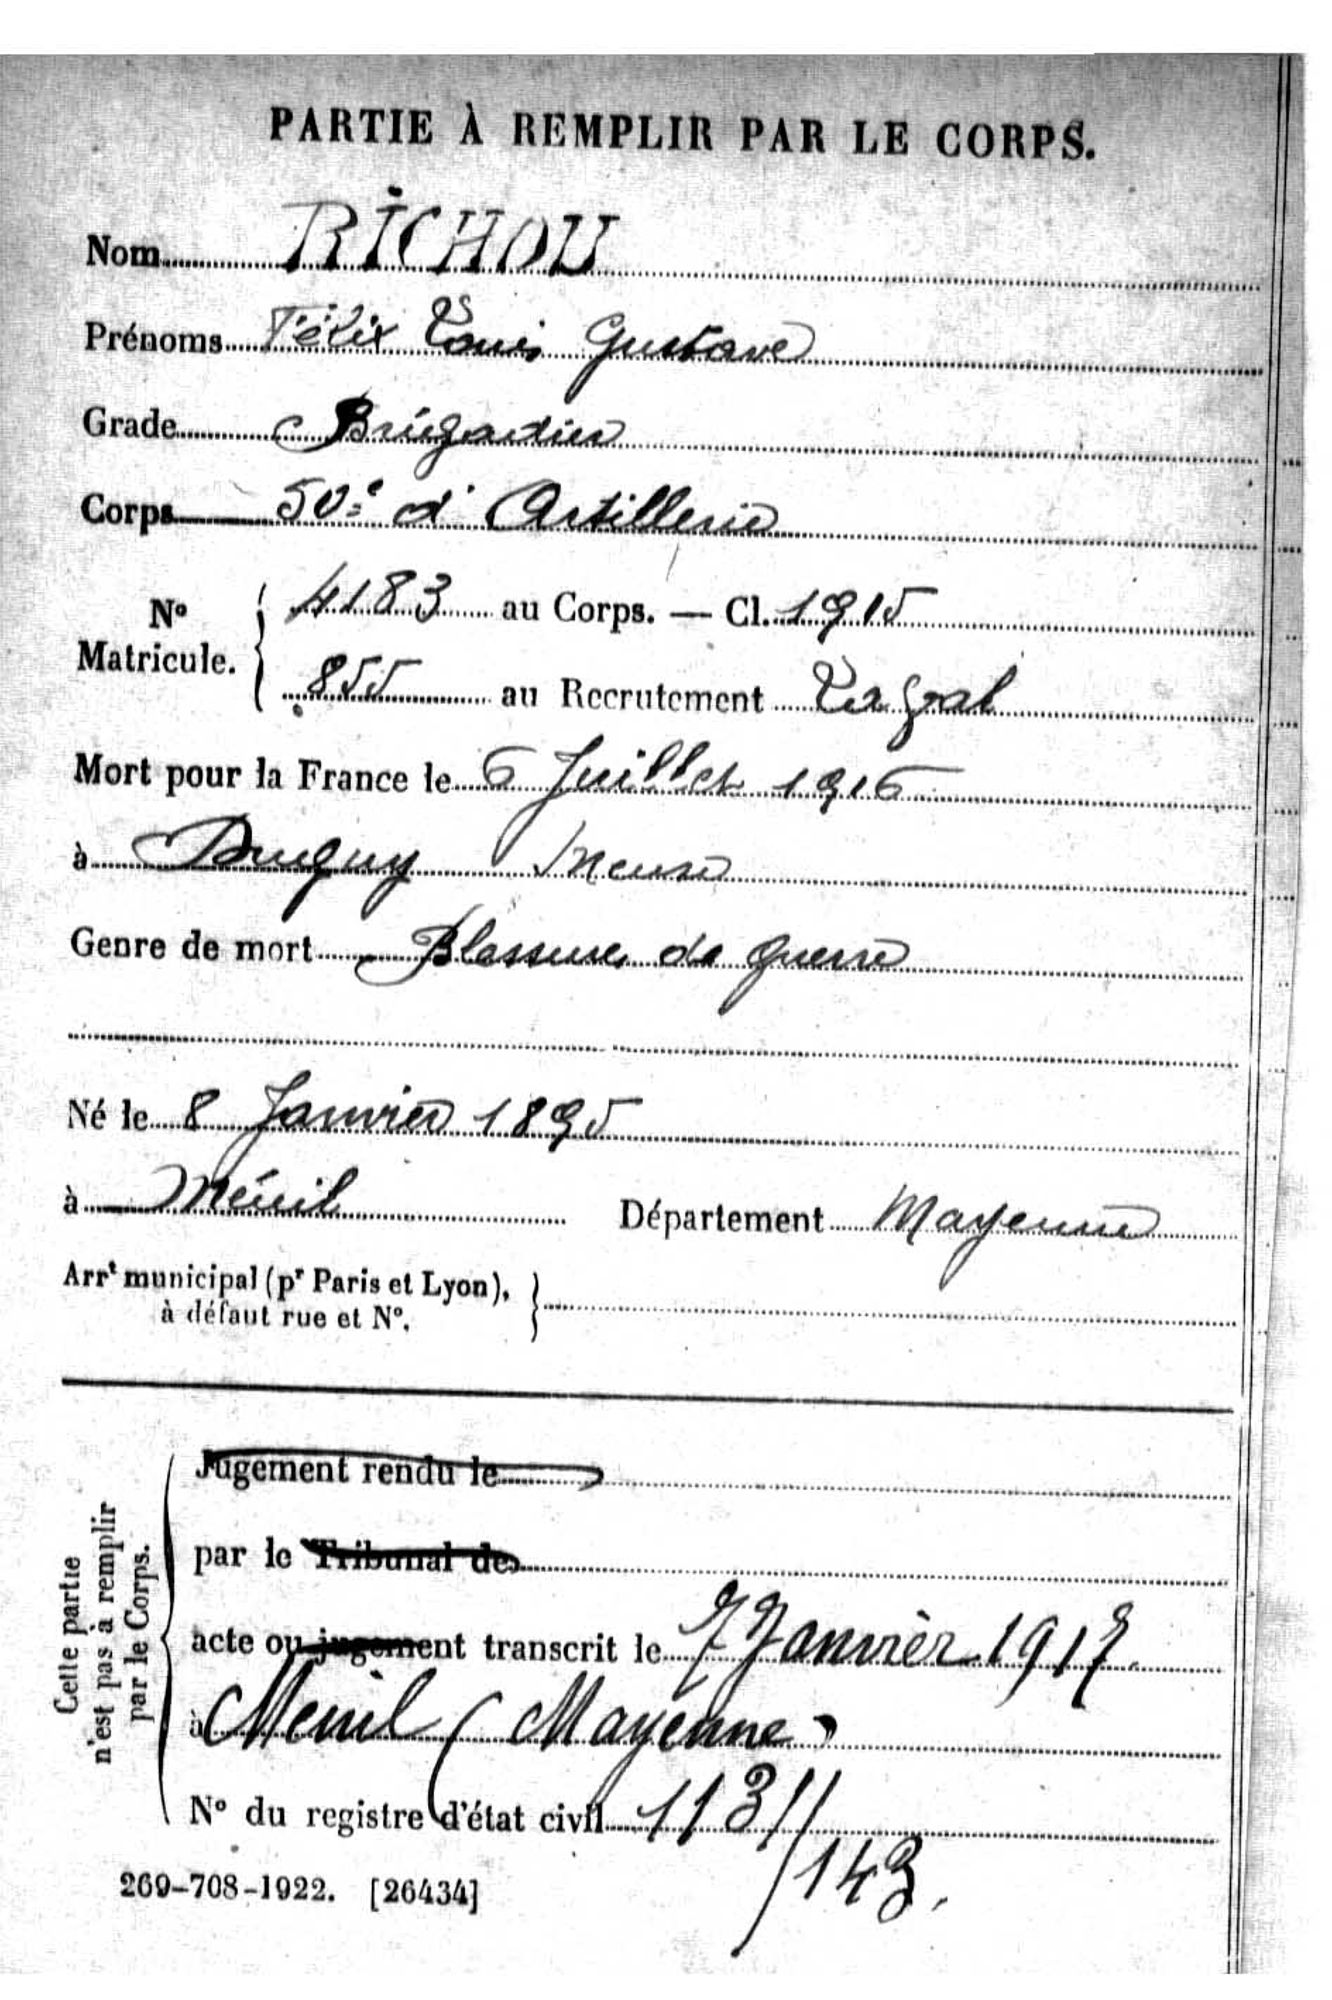 PARTIE À REMPLIR PAR LE CORPS.
Nom RICHOU
Prénoms Félix Louis Gustave
Grade Brigadier
Corps 50e d'Artillerie
N° Matricule. 4183 au Corps. — Cl. 1915
855 au Recrutement Laval
Mort pour la France le 6 Juillet 1916
à Dugny Meuse
Genre de mort Blessures de guerre
Né le 8 Janvier 1895
à Ménil Département Mayenne
Arrt municipal (pr Paris et Lyon),
à défaut rue et N°.
Cette partie
n'est pas à remplir
par le Corps.
Jugement rendu le
par le Tribunal de
acte ou jugement transcrit le 7 Janvier 1917.
à Menil (Mayenne)
N° du registre d'état civil 113
/143.
269-708-1922. [26434]